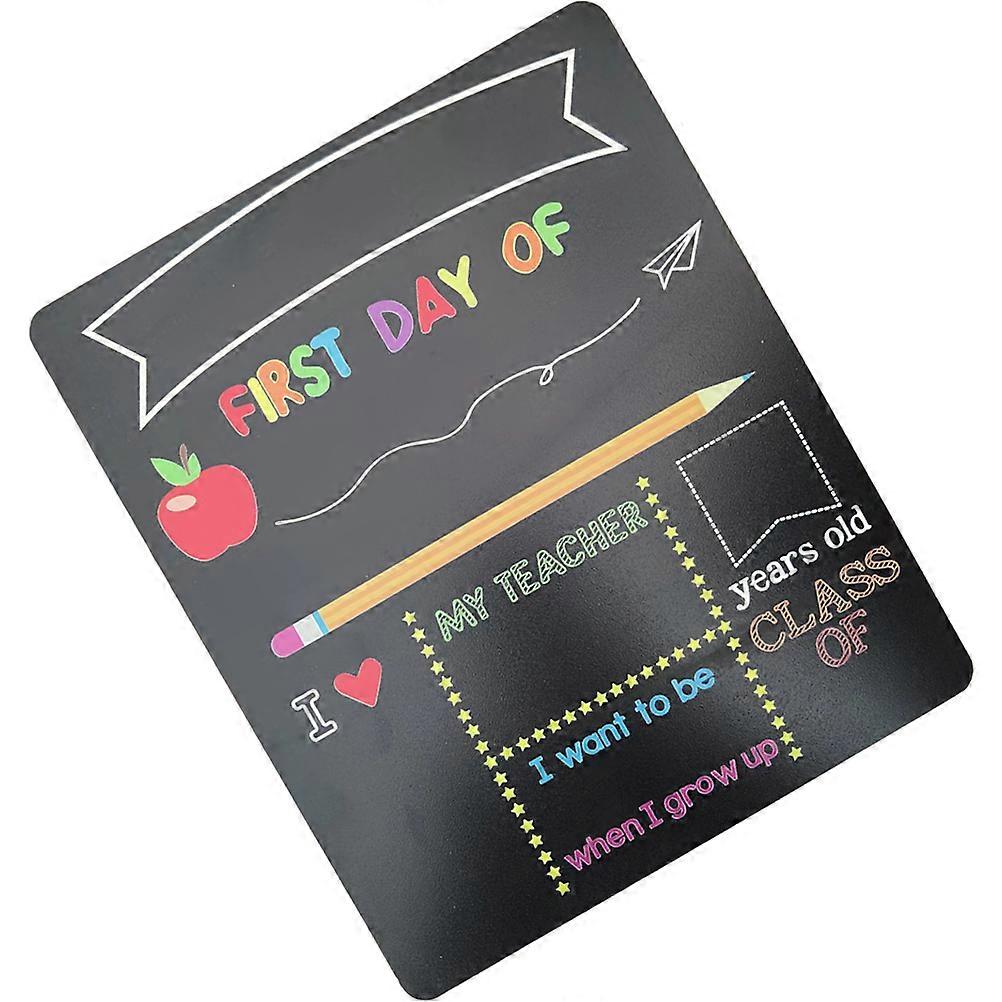 FIRST DAY OF
MY TEACHER
years old
CLASS
OF
I
I want to be
when I grow up